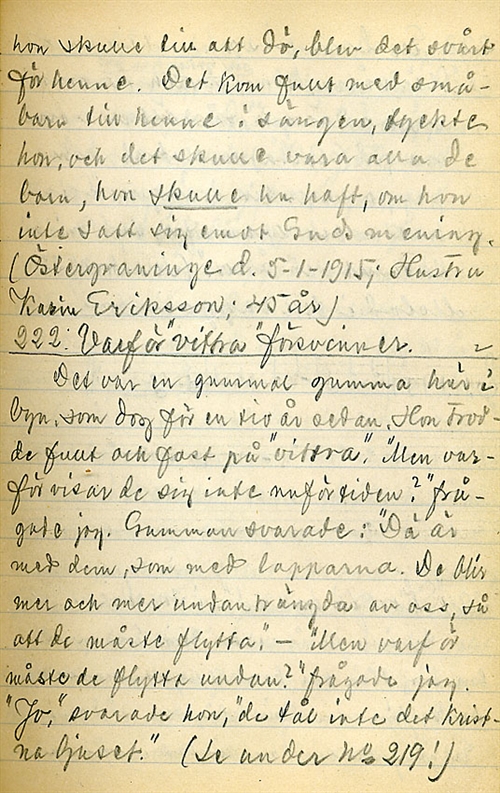 hon skulle till att dö, blev det svårt
för henne. Det kom fullt med små-
barn till henne i sängen, tyckte
hon, och det skulle vara alla de
barn, hon skulle ha haft, om hon
inte satt sig emot Guds mening.
(Östergraninge d. 5-1-1915; Hustru
Karin Eriksson; 45 år)
222: Varför "vittra" försvinner.
Det var en gammal gumma här i
byn, som dog för en tio år sedan. Hon trod-
de fullt och fast på "vittra". "Men var-
för visar de sig inte nuförtiden?" frå-
gade jag. Gumman svarade: "Då är
med dem, som med lapparna. De blir
mer och mer undanträngda av oss, så
att de måste flytta." – "Men varför
måste de flytta undan?" frågade jag.
"Jo," svarade hon, "de tål inte det krist-
na ljuset." (Se under No 219!)